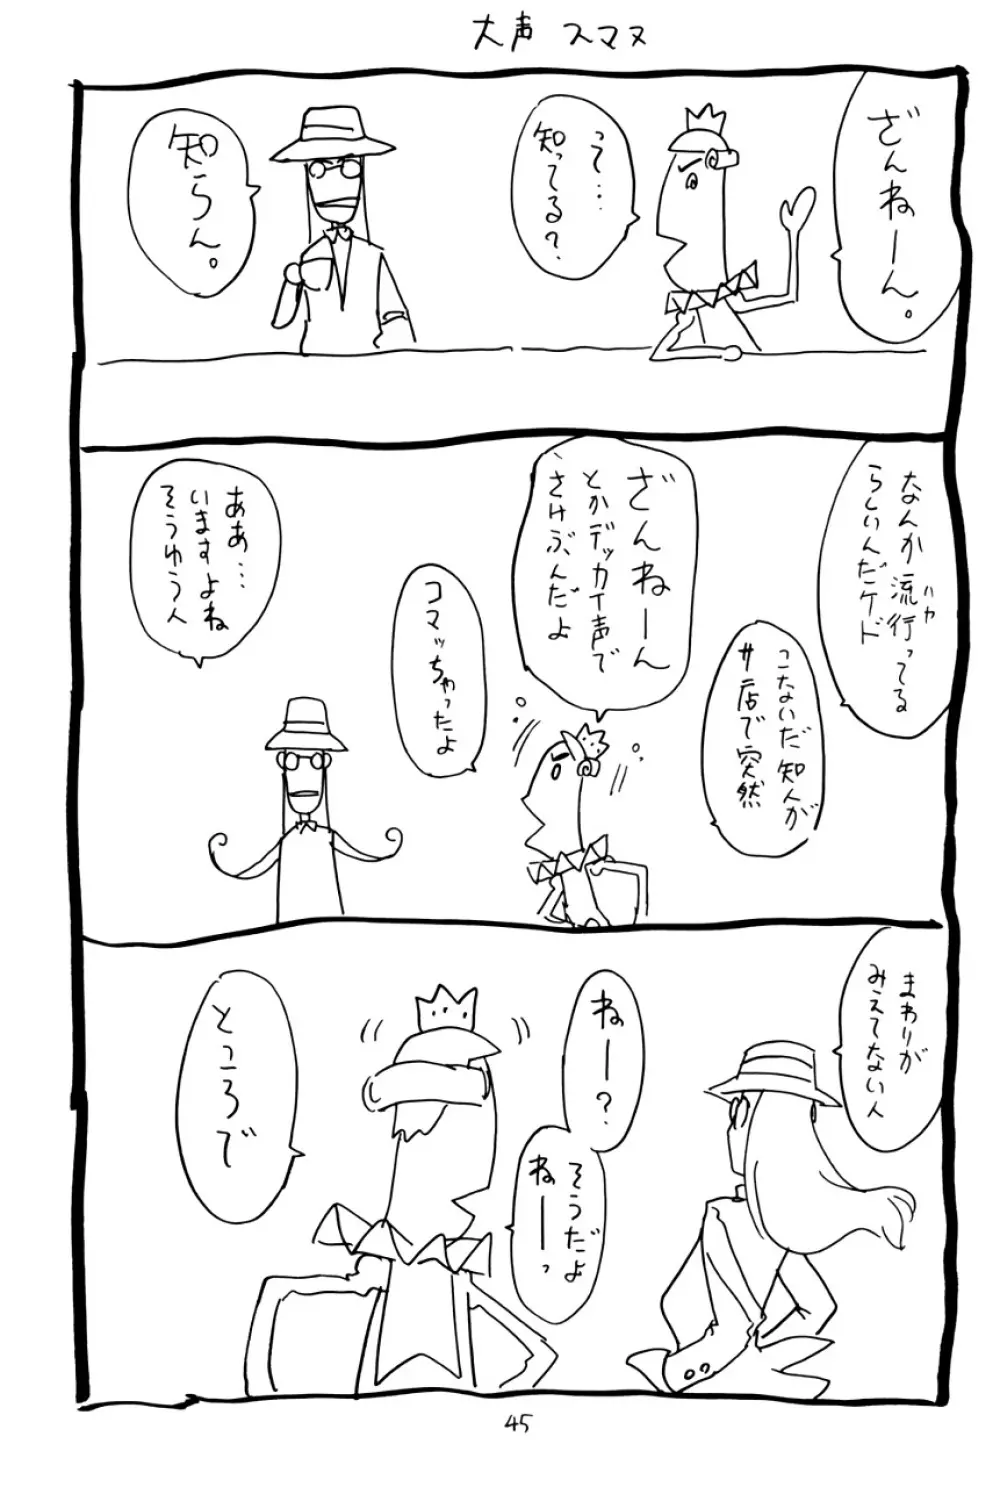 大声 スマヌ
ざんねーん。
って…
知ってる?
知らん。
なんか流行ってる
ハヤ
らしいんだケド
こないだ知人が
サ店で突然
ざんねーん
とかデッカイ声で
さけぶんだよ
コマッちゃったよ
ああ…
いますよね
そうゆう人
まわりが
みえてない人
ねー?
そうだよ
ねーーっ
ところで
45